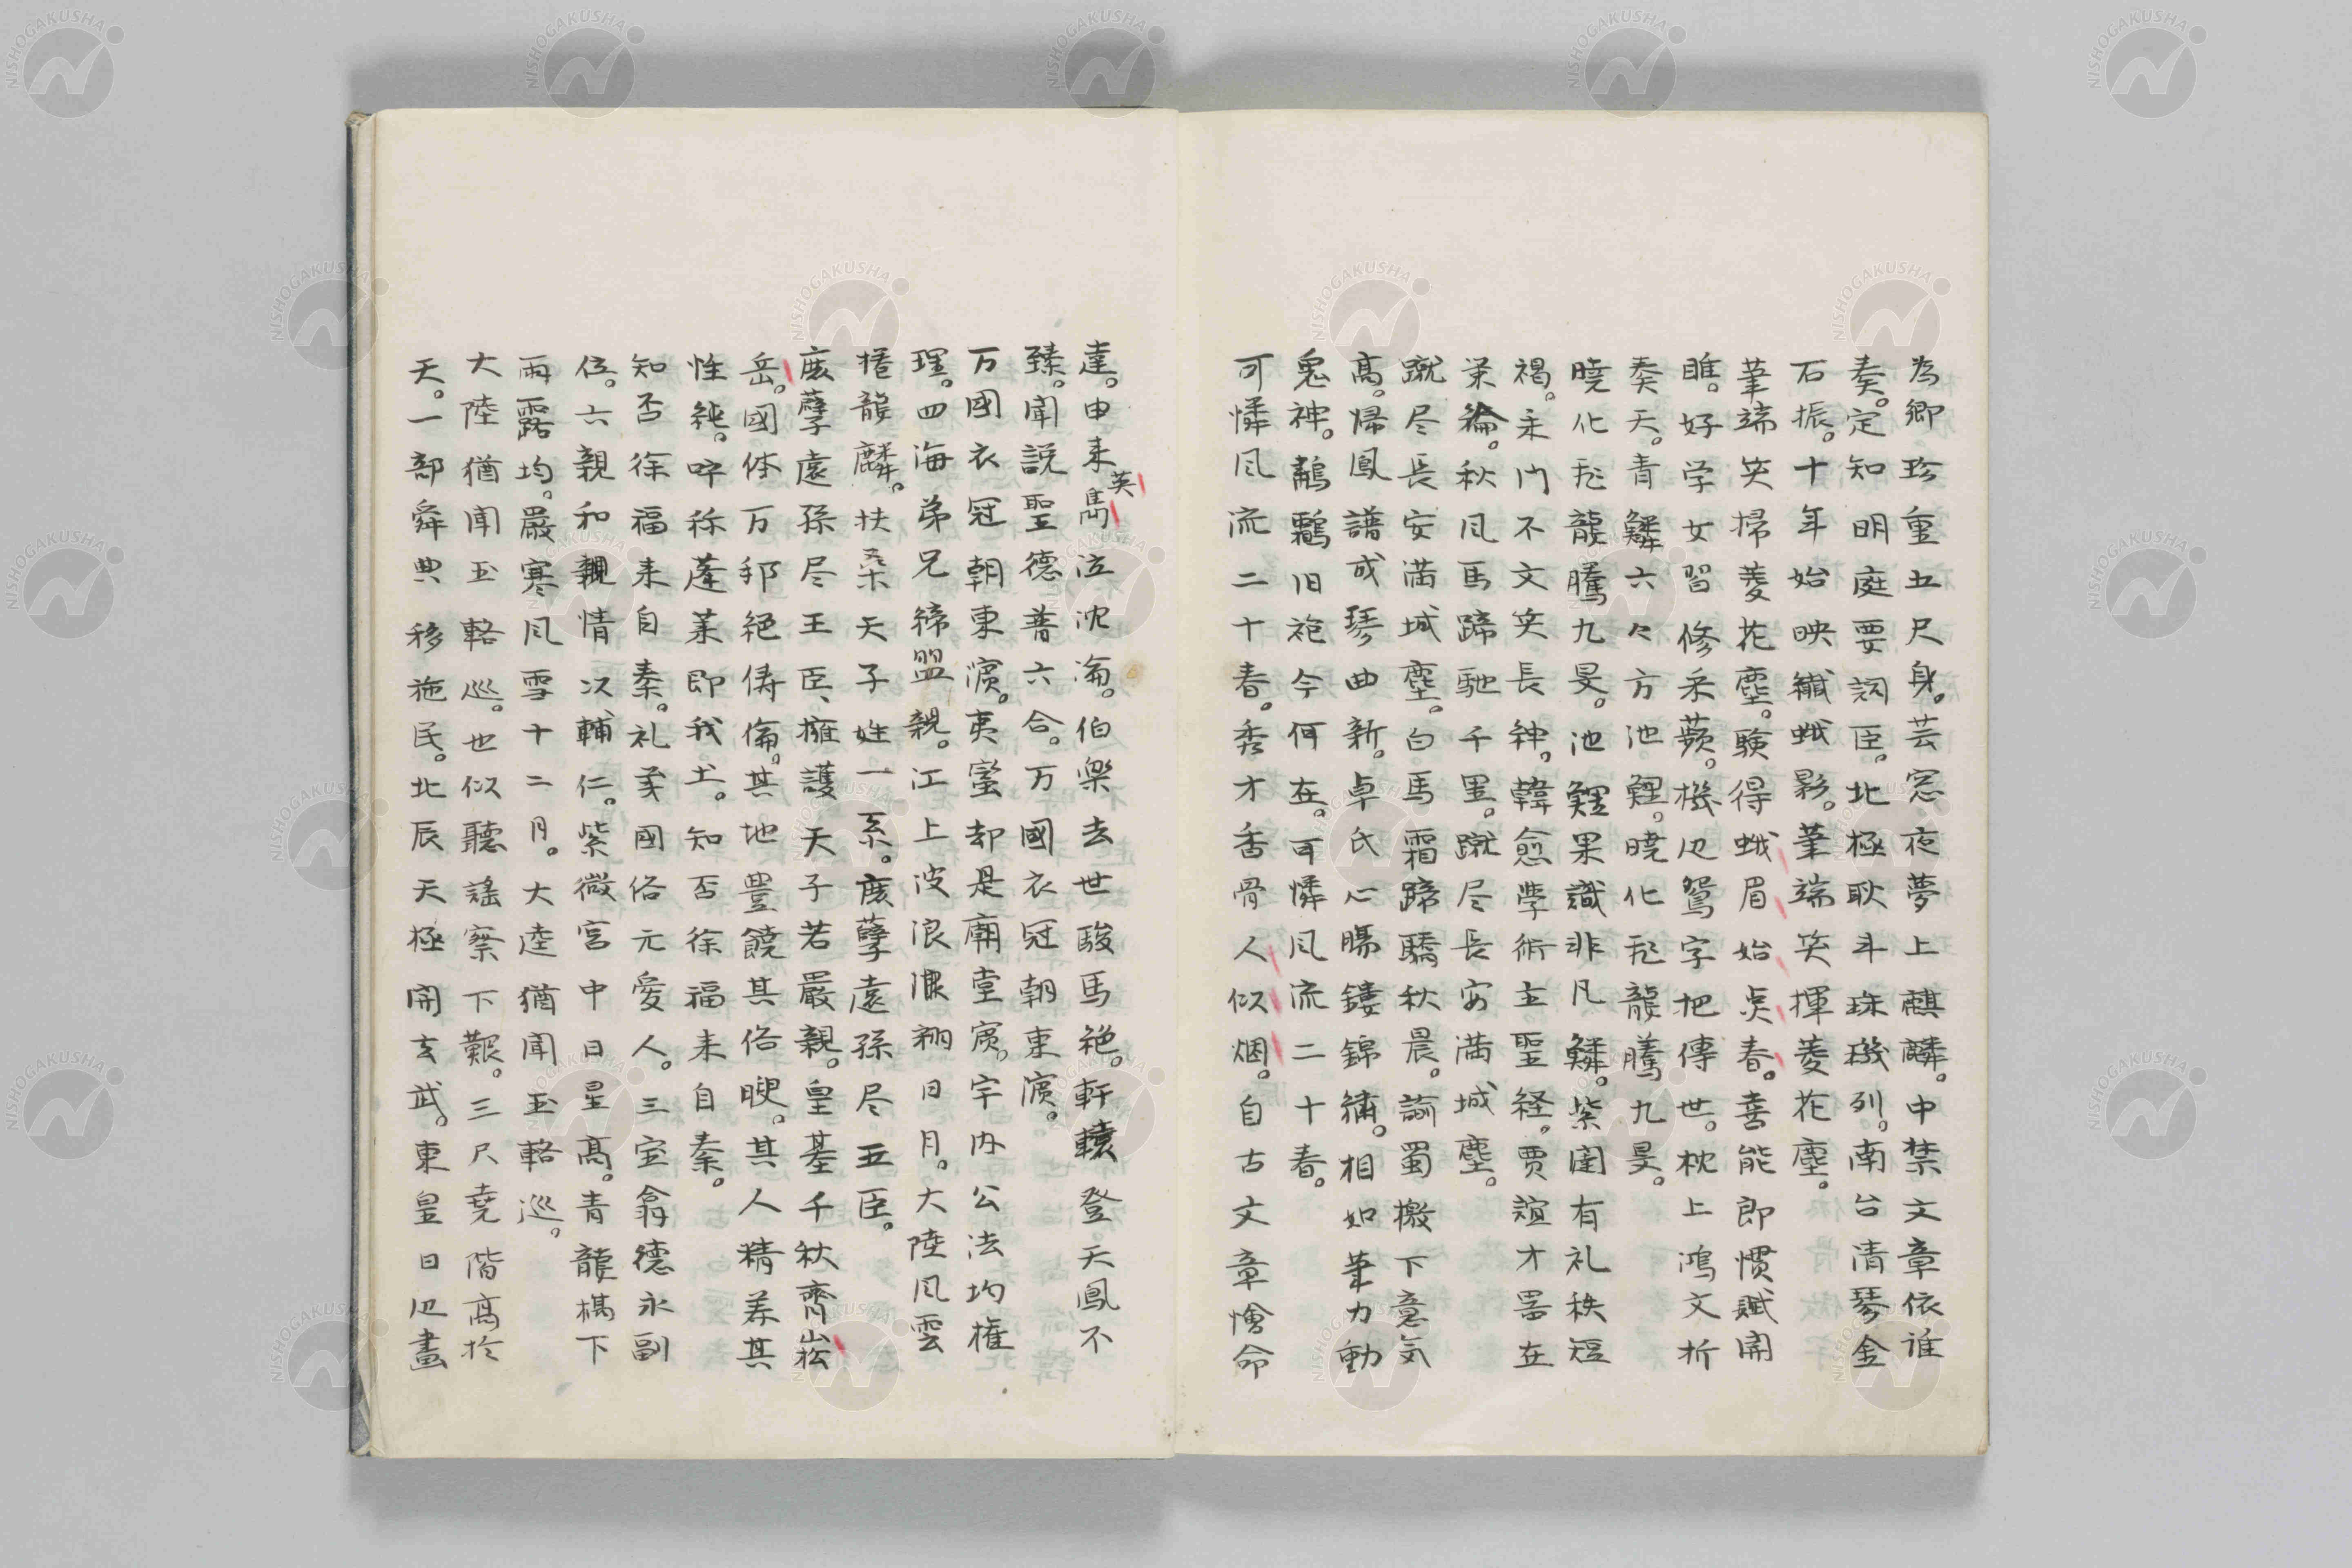 為卿珍重五尺身。芸窓夜夢上麒麟。中禁文章依誰
奏。定知明庭要詞臣。北極耿斗珠璣列。南台清琴金
石振。十年始映繊蛾影。筆端笑揮菱花塵。
筆端笑掃菱花塵。験得蛾眉始点春。喜能即慣賦関
雎。好学女習修采蘋。機辺鴛字把傳世。枕上鴻文折
奏天。青鱗六々方池鯉。暁化飛龍騰九旻。
暁化飛龍騰九旻。池鯉果識非凡鱗。紫闈有礼秩短
褐。朱門不文笑長紳。韓愈學術主聖経。賈誼才畧在
業綸。秋風馬蹄馳千里。蹴尽長安満城塵。
蹴尽長安満城塵。白馬霜蹄驕秋晨。諭蜀檄下意気
高。帰鳳譜成琴曲新。卓氏心腸鏤錦繍。相如筆力動
鬼神。鷫鸘旧袍今何在。可憐風流二十春。
可憐風流二十春。秀才香骨人似烟。自古文章憎命
達。由来雋英泣沈淪。伯樂去世駿馬絶。軒轅登天鳳不
臻。聞説聖徳普六合。万國衣冠朝東濱。
万國衣冠朝東濱。夷蠻却是廟堂賓。宇内公法均権
理。四海弟兄締盟親。江上波浪漲翔日月。大陸風雲
搢龍麟。扶桑天子姓一系。庶孽遠孫尽王臣。
庶孽遠孫尽王臣、擁護天子若嚴親。皇基千秋齊崧
岳。國体万邦絶儔倫。其地豊饒其俗腴。其人精善其
性純。呼称蓬莱即我土。知否徐福来自秦。
知否徐福来自秦。礼義國俗元愛人。三宝翕德永副
位。六親和親情次輔仁。紫微宮中日星高。青龍橋下
雨露均。嚴寒風雪十二月。大陸猶聞玉輅巡。
大陸猶聞玉輅巡。也似聽謡察下艱。三尺堯階高於
天。一部舜典移施民。北辰天極開玄武。東皇日辺畫